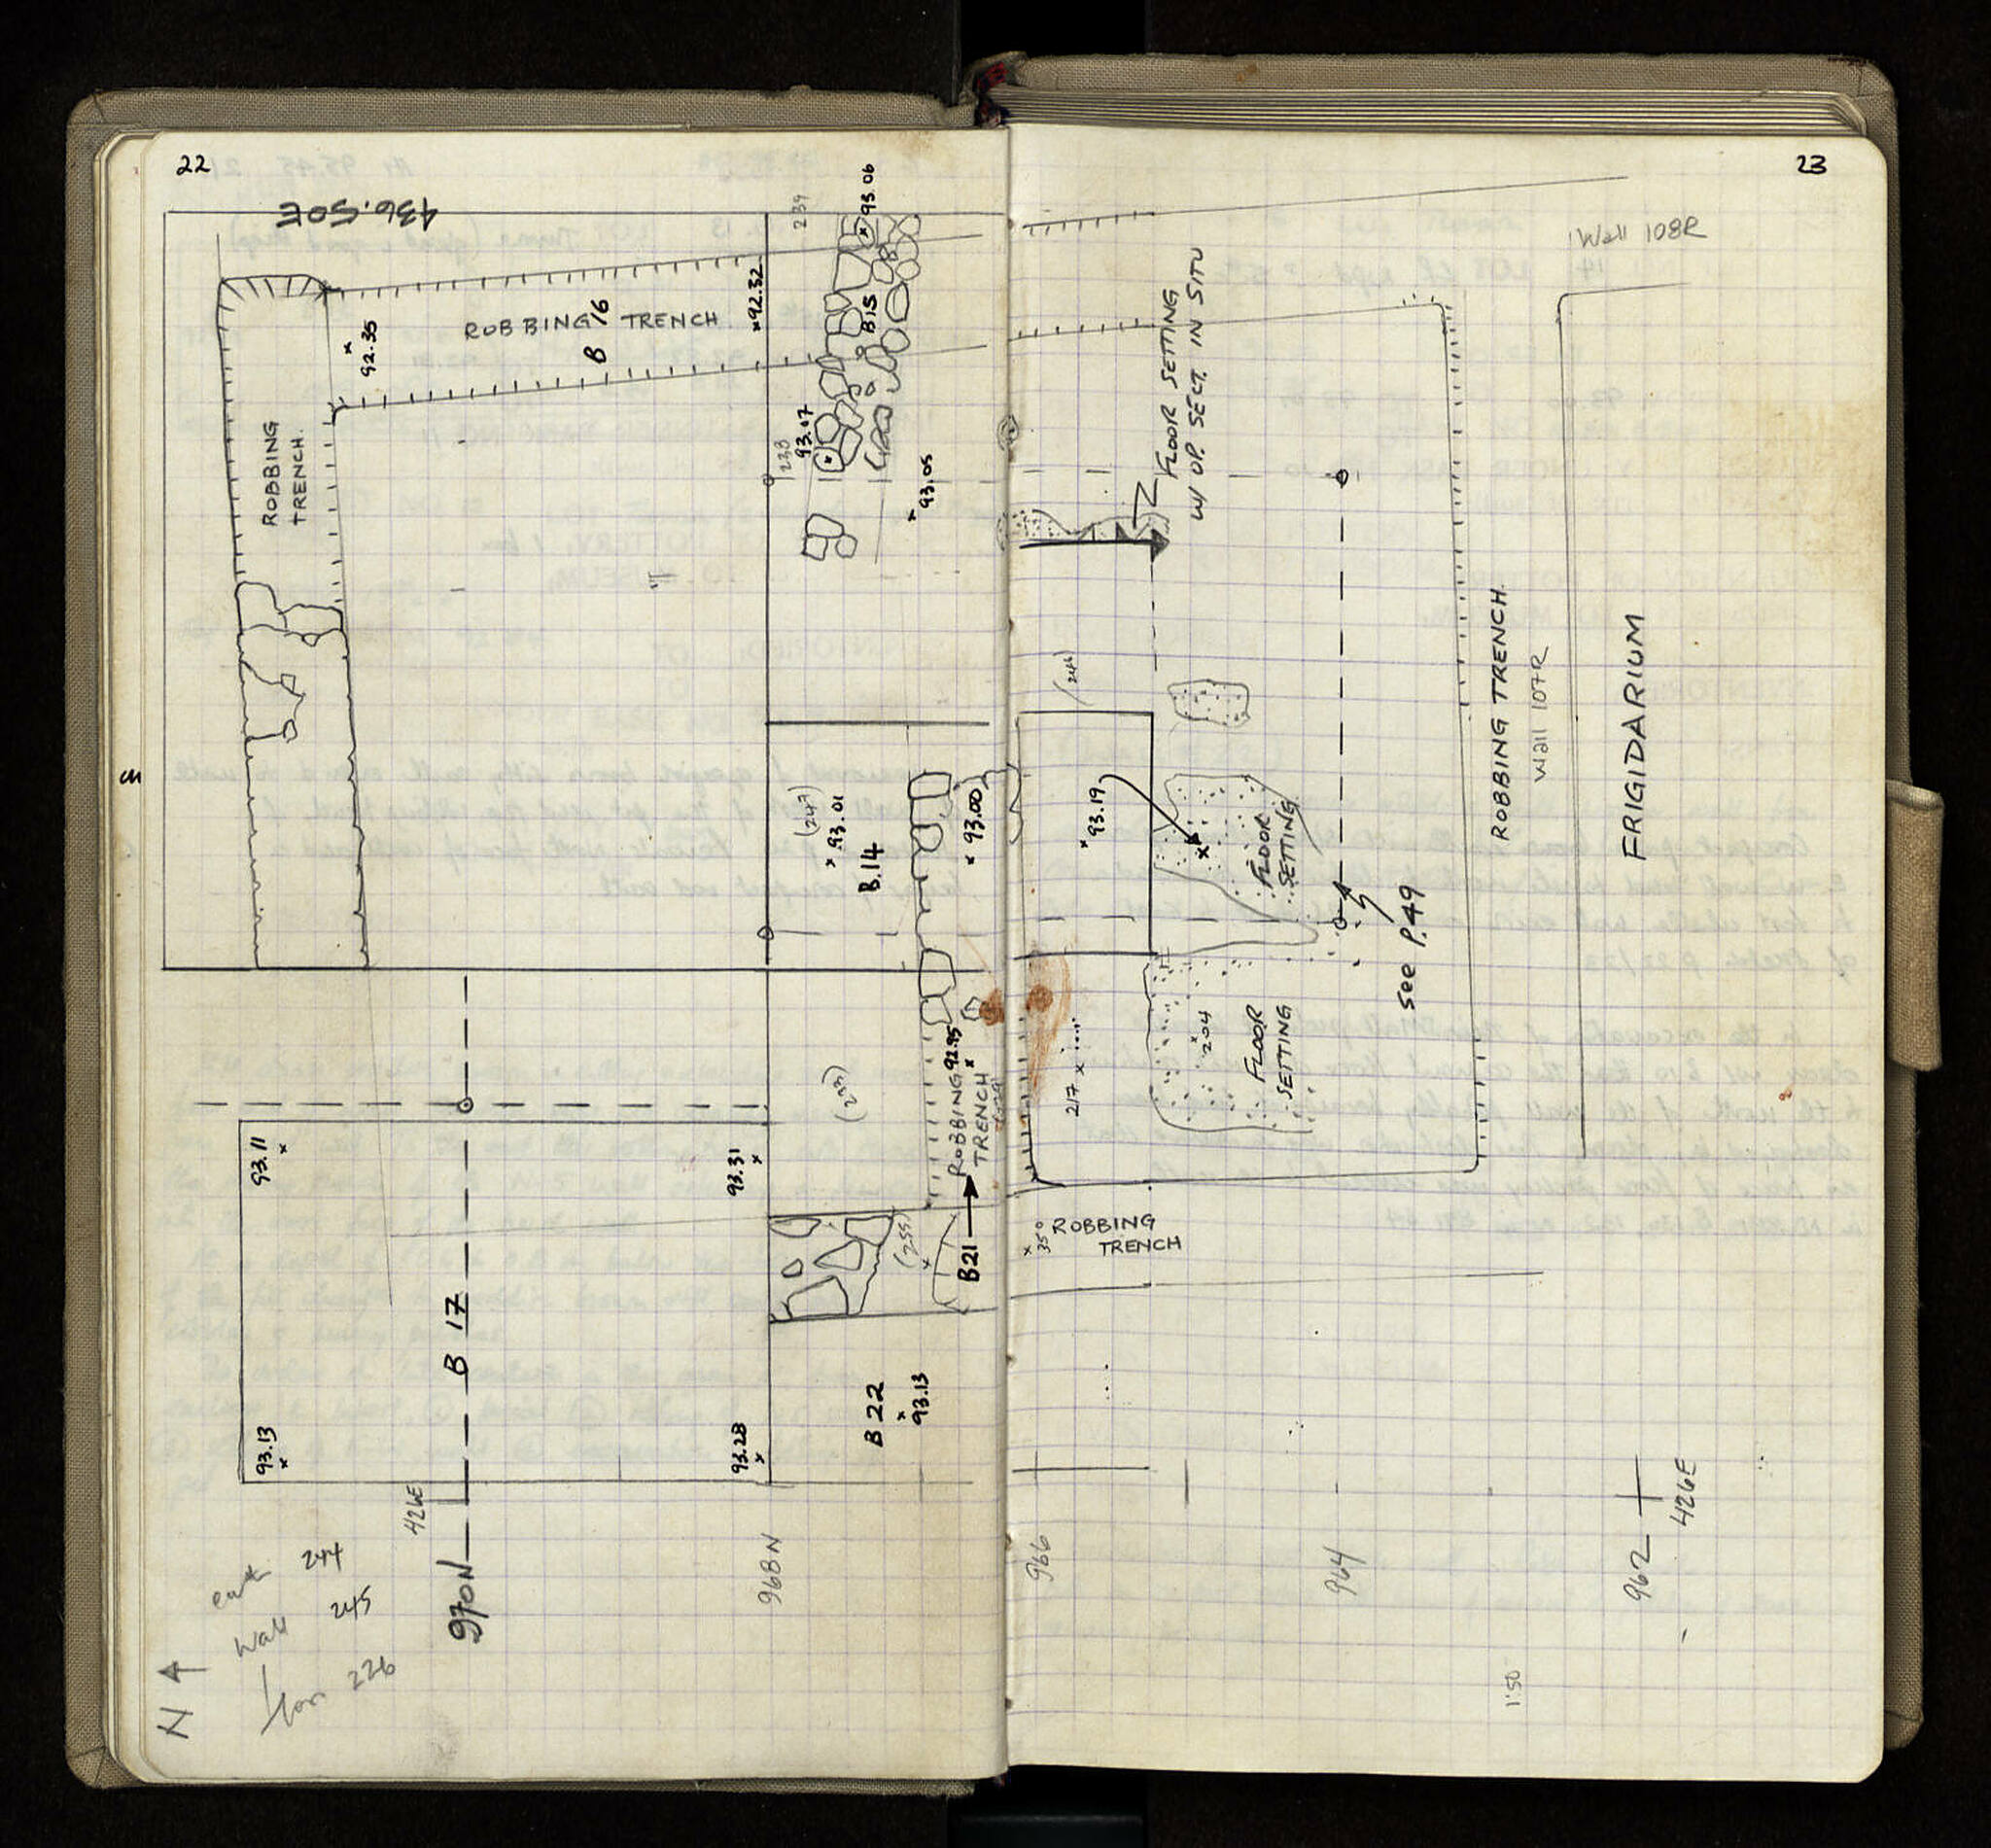 22
436.50E
239
93.06
92.35
ROBBING TRENCH
B 16
92.32
B15
ROBBING
TRENCH.
238
93.07
93.05
(247)
93.01
B.14
93.00
(233)
92.95
ROBBING
TRENCH
93.11
93.31
(255)
B21
B 17
B 22
93.13
93.13
93.28
426E
970N
968N
244
Wall 245
226
N
23
Wall 108R
FLOOR SETTING
W/ OP. SECT. IN SITU
(246)
93.19
FLOOR
SETTING
ROBBING TRENCH.
Wall 107R
FRIGIDARIUM
See P.49
217
204
FLOOR
SETTING
35°
ROBBING
TRENCH
966
964
962
426E
1:50